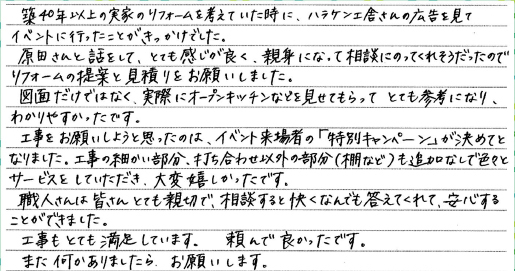 築40年以上の実家のリフォームを考えていた時に、ハラケン工舎さんの広告を見て
イベントに行ったことがきっかけでした。
原田さんと話をして、とても感じが良く、親身になって相談にのってくれそうだったので
リフォームの提案と見積りをお願いしました。
図面だけではなく、実際にオープンキッチンなどを見せてもらって とても参考になり、
わかりやすかったです。
工事をお願いしようと思ったのは、イベント来場者の「特別キャンペーン」が決めてと
なりました。工事の細かい部分、打ち合わせ以外の部分(棚など)も追加なしで色々と
サービスをしていただき、大変嬉しかったです。
職人さんは皆さんとても親切で、相談すると快くなんでも答えてくれて、安心する
ことができました。
工事もとても満足しています。 頼んで良かったです。
また何かありましたら、お願いします。